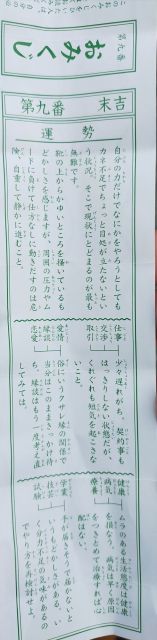 第九番
おみくじ
第九番
末吉
運勢
自分の力だけでなにかをやろうとしても
カネ不足でちょっと目処が立たないとい
う状況。そこで現状にとどまるのが最も
無難です。
靴の上からかゆいところを掻いているも
どかしさを感じますが、周囲の圧力やム
ードに負けて仕方なしに動きだすのは危
険、自重して静かに進むこと。
仕事
交渉
取引
少々遅れがち。契約事も
はっきりしない状態だが、
くれぐれも短気を起こさな
いこと。
愛情
縁談
恋愛
俗にいうクサレ縁の関係で
当分はこのままきっかけ待
ち。縁談はもう一度考え直
してみては。
健康
病気
療養
ムラのある生活態度は健康
を損なう。病気は早く原因
をつきとめて治療すれば心
配はない。
学業
技芸
試験
手が届きそうで届かないと
いうもどかしさがある。い
く分力不足の気味があるの
でやり方を再検討せよ。